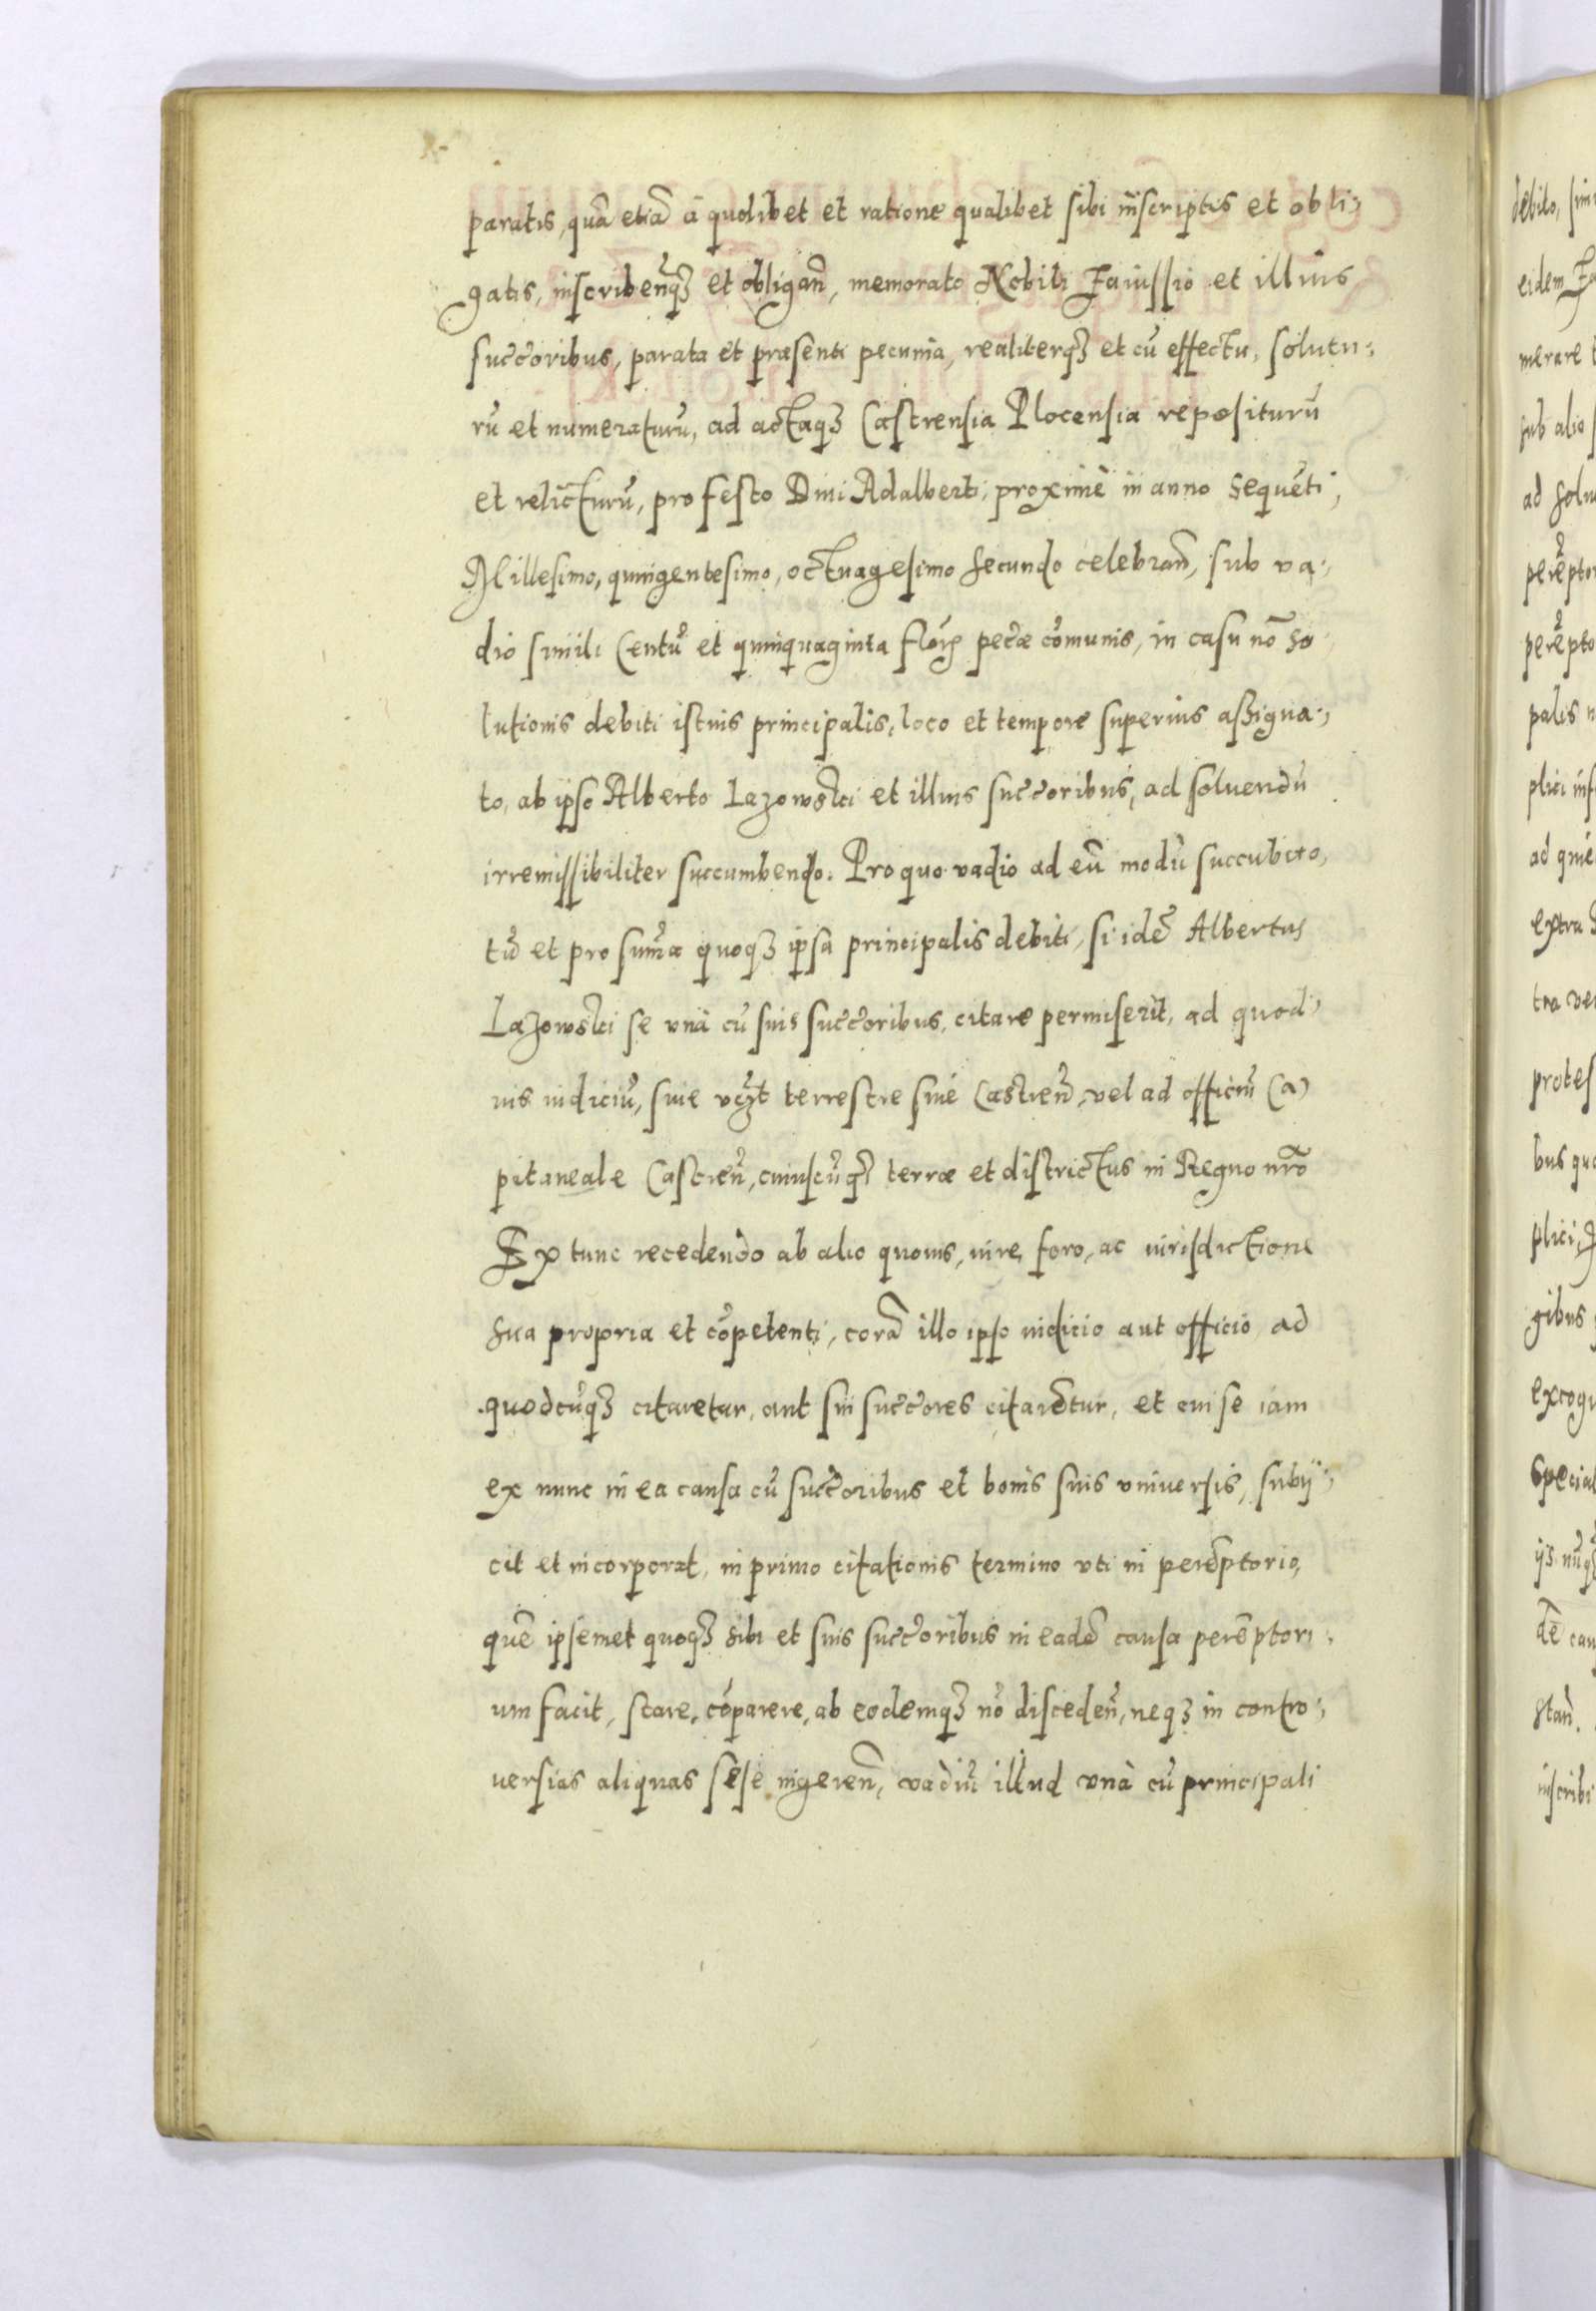 paratis, quā etiā à quolibet et ratione qualibet sibi inscriptis et obli-
gatis, inscribenq3 et obligan̄, memorato Nobili Faiussio et illius
succoribus, parata et præsenti pecunia, realiterq3 et cū effectu, solutu-
rū et numeraturū, ad actaq3 Castrensia Plocensia repositurū
et relicturū, pro festo Diui Adalberti, proximè in anno sequēti,
Millesimo, quingentesimo, octuagesimo secundo celebran̄, sub va-
dio simili Centū et quinquaginta flor̄ pecæ cōmunis, in casu nō so
lutionis debiti istius principalis, loco et tempore superius assigna-
to, ab ipso Alberto Lazowski et illius succoribus, ad soluendū
irremissibiliter succumbendo. Pro quo vadio ad eū modū succubito,
tū et pro summa quoq3 ipsa principalis debiti, si idē Albertus
Lazowski se vnà cū suis succoribus, citare permiserit, ad quod-
uis iudiciū, siue vc3t terrestre siue Castren̄, vel ad officiū Ca
pitaneale Castren̄, cuiuscūq3 terræ et districtus in Regno nr̄o
Ex tunc recedendo ab alio quouis, iure, foro, ac iurisdictione
sua propria et cōpetenti, corā illo ipso iudicio aut officio ad
quodcūq3 citaretur, aut sui succores citarētur, et cui se iam
ex nunc in ea causa cū succoribus et bonis suis vniuersis, subij-
cit et incorporat, in primo citationis termino vti in perēptorio,
quē ipsemet quoq3 sibi et suis succoribus in eadē causa perēptori-
um facit, stare, cōparere, ab eodemq3 nō disceden̄, neq3 in contro-
uersias aliquas sese ingeren̄, vadiū illud vnà cū principali
debito,
eidem
merare
sub alio
ad
palis
extra
bus
plici,
gibus